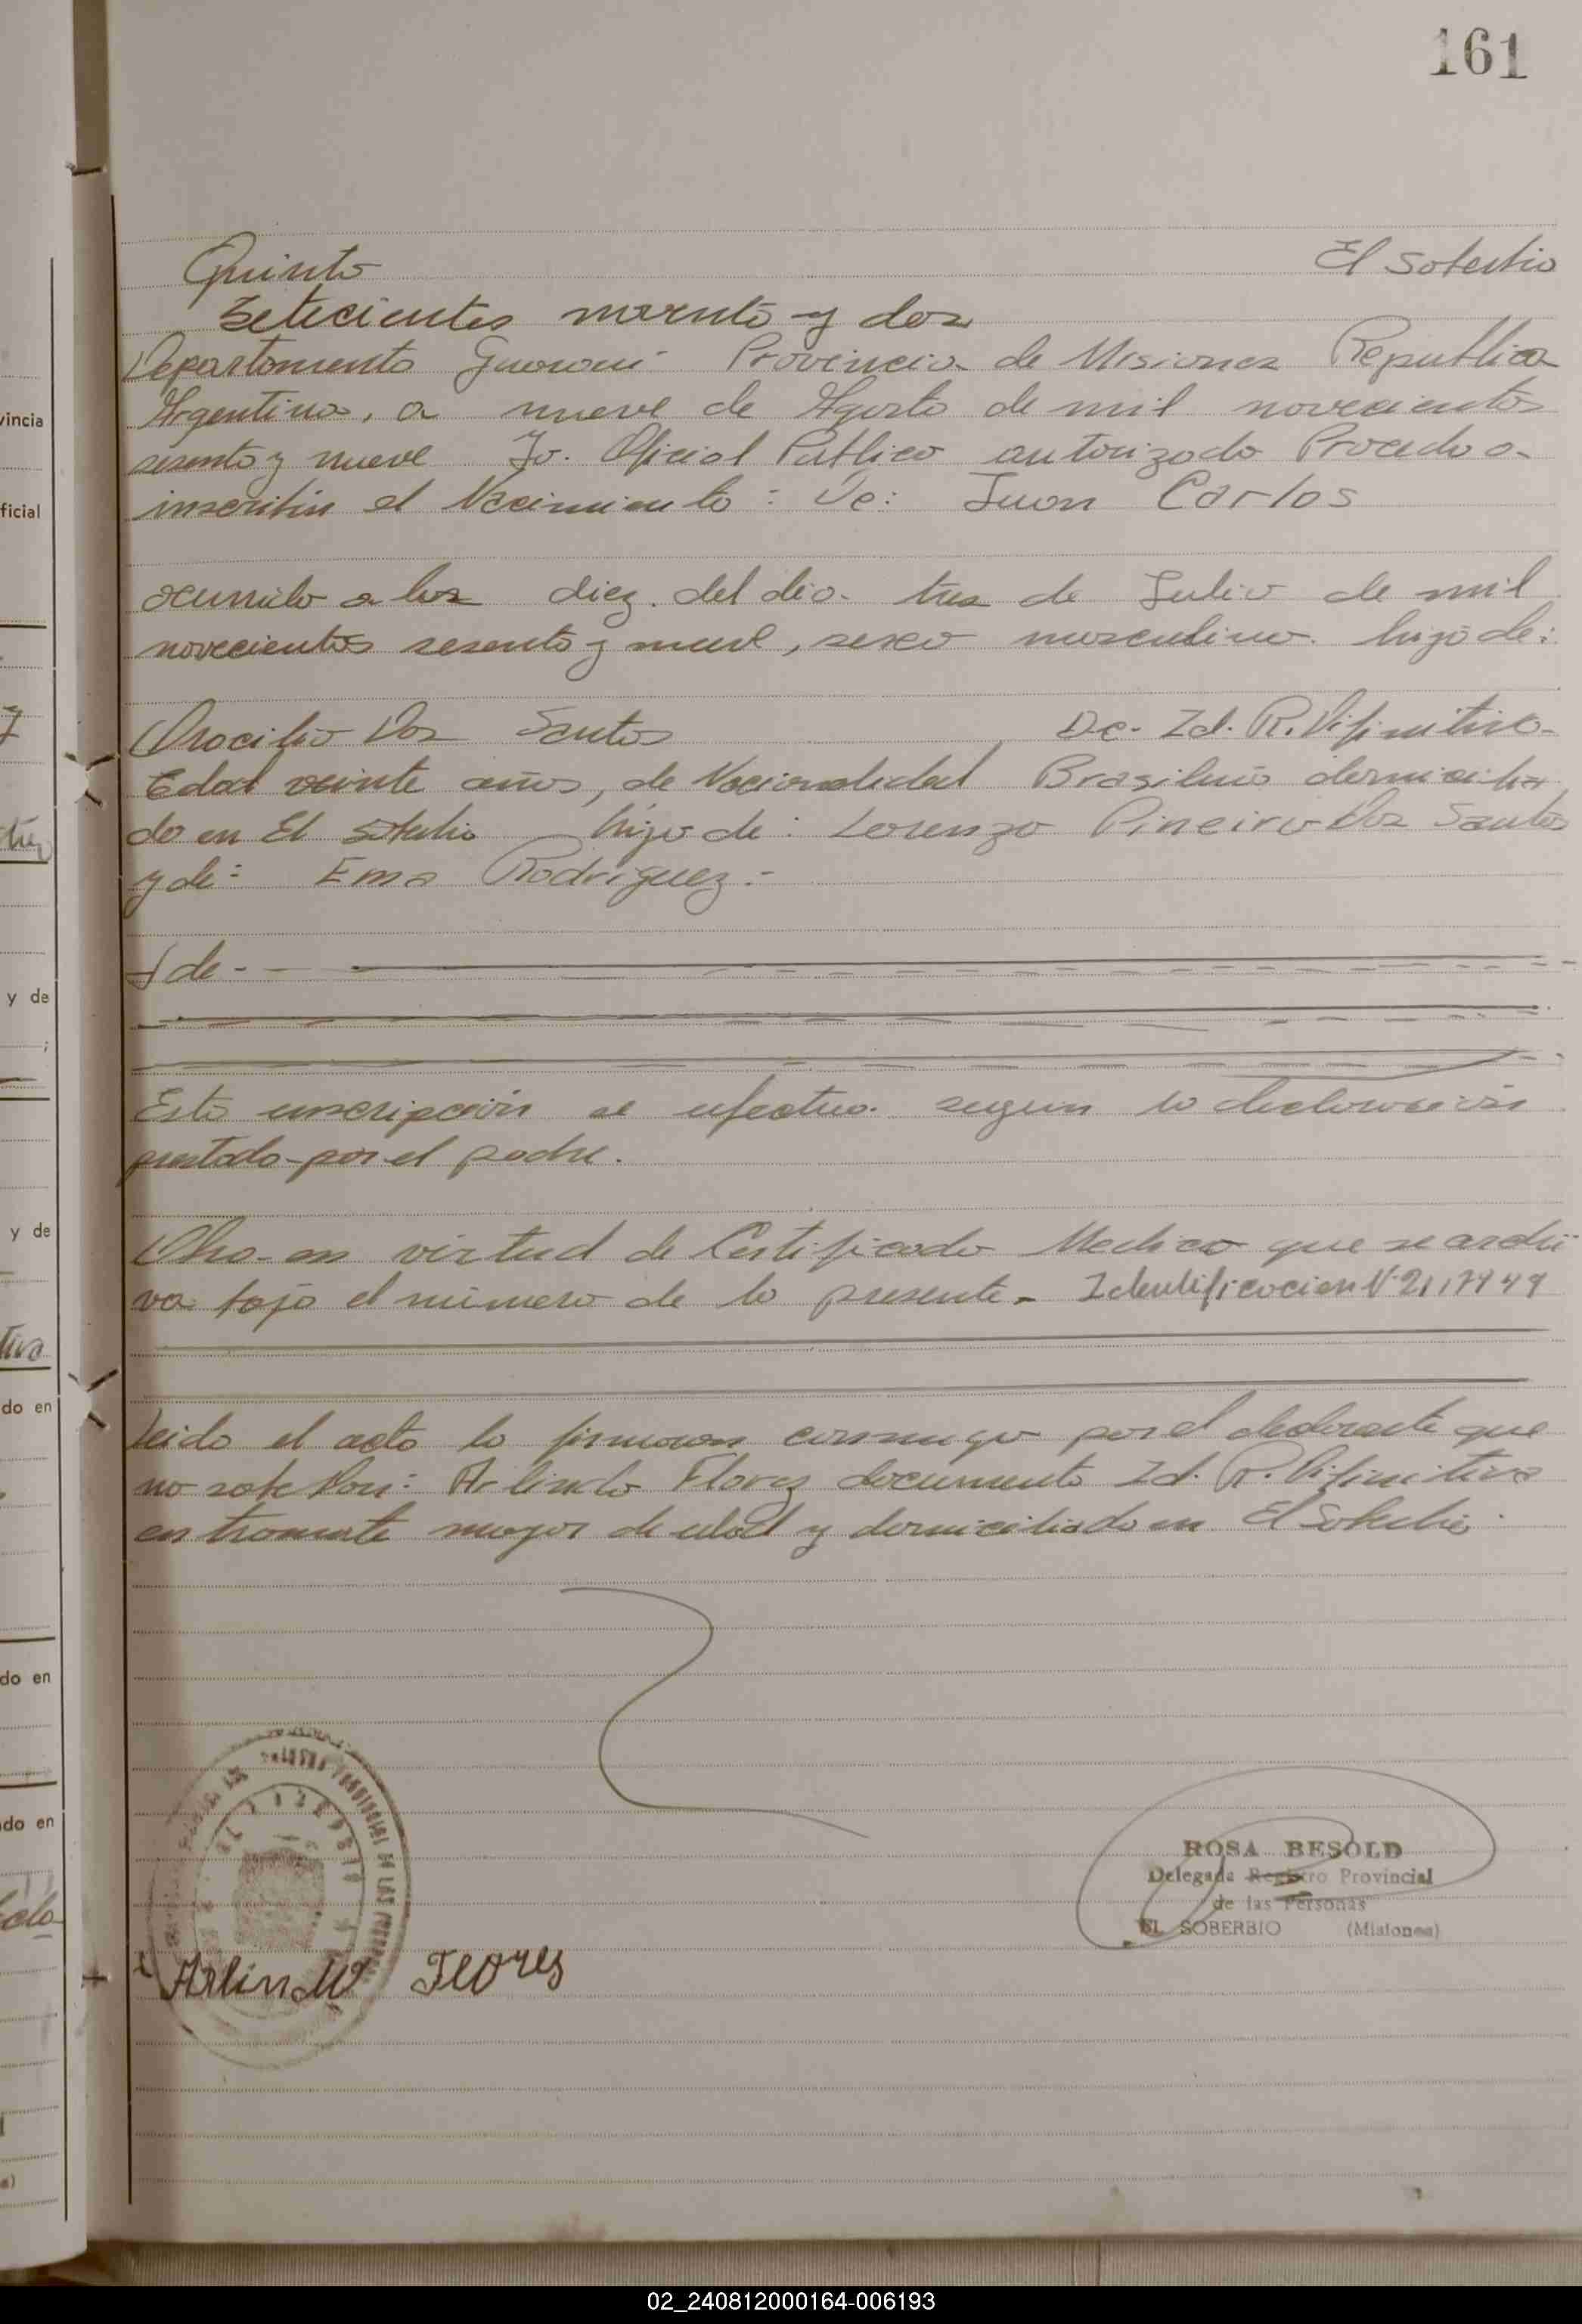 161
Quinto El Soberbio
Setecientos noventa y dos
Departamento Guarani Provincia de Misiones Republica
Argentina, a nueve de Agosto de mil novecientos
sesenta y nueve Yo. Oficial Publico autorizado Procedo a
inscribir el Nacimiento : De: Juan Carlos
ocurrido a las diez. del dia tres de Julio de mil
novecientos sesenta y nueve, sexo masculino. hijo de:
Dos Santos De. Id. R. Difinitivo-
Edad veinte años, de Nacionalidad Brasileño domicilia
do en El Soberbio hijo de: Lorenzo Pineiro Dos Santos
y de: Ema Rodriguez.-
y de -
Esta inscripción se efectua segun la declaración
prestada por el padre.
Obra en virtud de Certificado Medico que se archi
va bajo el número de la presente.- Identificacion Nº
Leida el acta la firmaron conmigo por el declarante que
no sabe Don: Arlindo Florez documento Id. R. Difinitiva
en tramite mayor de edad y domiciliado en El Soberbio.
ROSA BESOLD
Delegada Registro Provincial
de las Personas
EL SOBERBIO (Misiones)
Arlindo Flores
vincia
ficial
y de
;
y de
tiva
do en
do en
do en
02_240812000164-006193